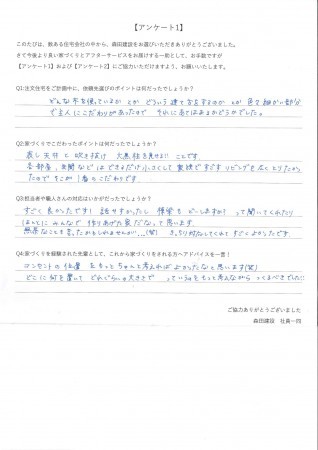 【アンケート1】
このたびは、数ある住宅会社の中から、森田建設をお選びいただきありがとうございました。
さて今後より良い家づくりとアフターサービスをお届けする一助として、お手数ですが
【アンケート1】および【アンケート2】にご協力いただけますよう、お願いいたします。
Q1:注文住宅をご計画中に、依頼先選びのポイントは何だったでしょうか？
どんな木を使っているか とか どういう建て方をするのか とか 色々細かい部分
で主人にこだわりがあったので それに合てはまるかどうかでした。
Q2:家づくりでこだわったポイントは何だったでしょうか？
表し天井と吹きぬけ 大黒柱を見せたことです
各部屋、玄関などはできるだけ小さくして家族ですごすリビングを広くとりたかっ
たので そこが1番のこだわりです
Q3:担当者や職人さんの対応はいかがだったでしょうか？
すごく良かったです！ 話しやすかったし 保管もどーしますか？って聞いてくれたり
ほんとに みんなで作りあげた家だなって思います。
無茶なことも言ったかもしれませんが…(笑) きっちり対応してくれてすごくよかったです。
Q4:家づくりを経験された先輩として、これから家づくりをされる方へアドバイスを一言！
コンセントの位置をもっとちゃんと考えればよかったなと思います(笑)
どこに何を置いて どれぐらいの大きさで っていうのをもっと考えながらつくるべきでした
ご協力ありがとうございました
森田建設 社員一同